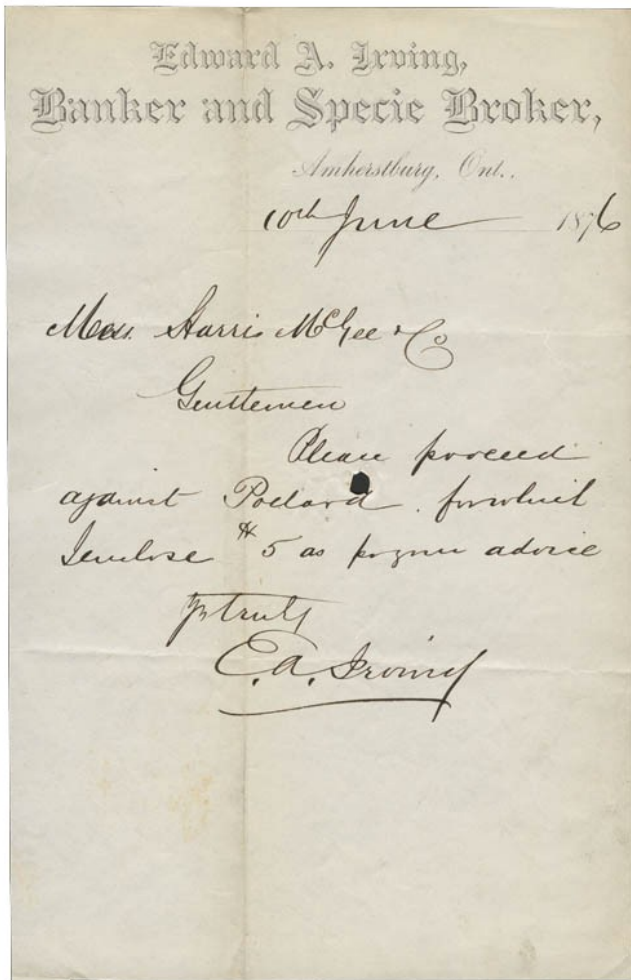 Edward A. Irving,
Banker and Specie Broker,
Amherstburg, Ont.,
10th June 1876
Mess. Harris McGee & Co
Gentlemen
Please proceed
against Pollard for which
I enclose $5 as per your advice
Yrs truly
E. A. Irving